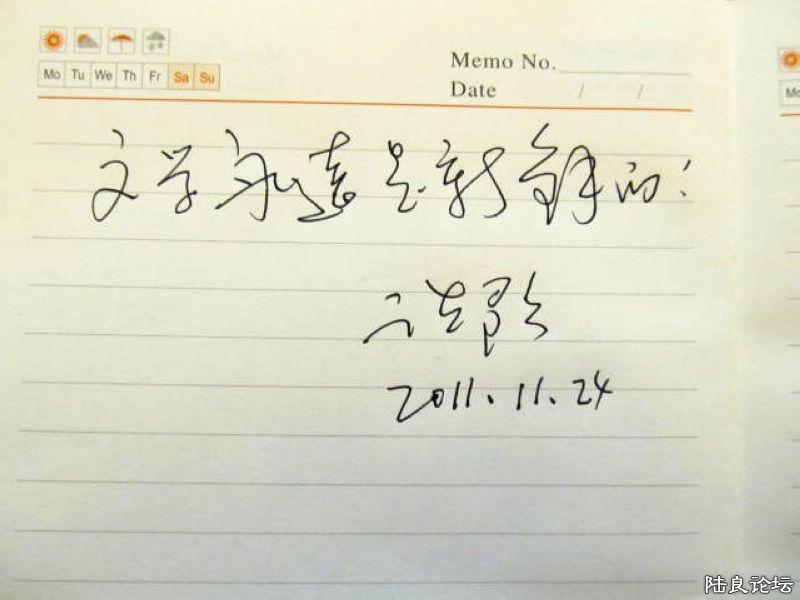 Mo Tu We Th Fr Sa Su
Memo No.
Date / /
文学永远是新鲜的!
2011.11.24
陆良论坛